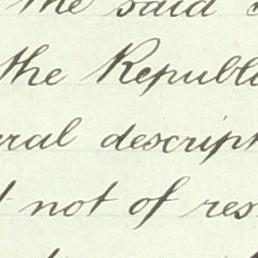 the said
the Republi
ral descript
not of res